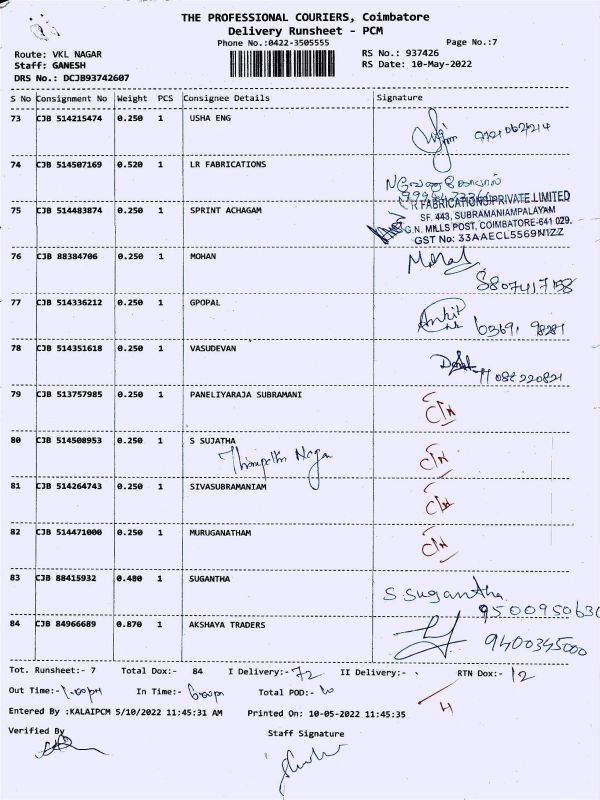 THE PROFESSIONAL COURIERS, Coimbatore
Delivery Runsheet - PCM
Phone No.:0422-3505555 Page No.:7
Route: VKL NAGAR RS No.: 937426
Staff: GANESH RS Date: 10-May-2022
DRS No.: DCJB93742607
S No Consignment No Weight PCS Consignee Details Signature
73 CJB 514215474 0.250 1 USHA ENG
74 CJB 514507169 0.520 1 LR FABRICATIONS
LR FABRICATIONS PRIVATE LIMITED
75 CJB 514483874 0.250 1 SPRINT ACHAGAM
SF. 443, SUBRAMANIAMPALAYAM
G.N. MILLS POST, COIMBATORE-641 029.
GST No: 33AAECL5569N1ZZ
76 CJB 88384706 0.250 1 MOHAN
77 CJB 514336212 0.250 1 GPOPAL Ankit
78 CJB 514351618 0.250 1 VASUDEVAN
79 CJB 513757985 0.250 1 PANELIYARAJA SUBRAMANI
80 CJB 514508953 0.250 1 S SUJATHA
Nagar
81 CJB 514264743 0.250 1 SIVASUBRAMANIAM
82 CJB 514471000 0.250 1 MURUGANATHAM
83 CJB 88415932 0.480 1 SUGANTHA S.Sugantha
9500950630
84 CJB 84966689 0.870 1 AKSHAYA TRADERS 9400345000
Tot. Runsheet:- 7 Total Dox:- 84 I Delivery:- 72 II Delivery:- RTN Dox:- 12
Out Time:- 1.00pm In Time:- 6.00pm Total POD:-
Entered By :KALAIPCM 5/10/2022 11:45:31 AM Printed On: 10-05-2022 11:45:35
Verified By Staff Signature